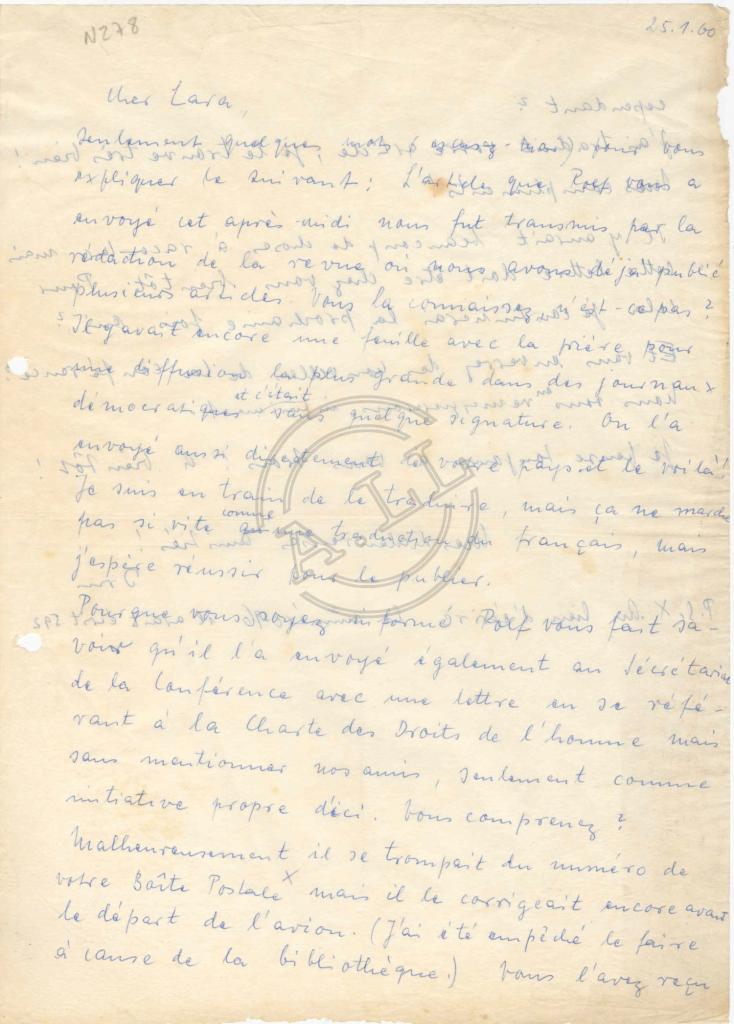 N278
25.1.60
Cher Lara,
seulement quelques mots (excusez-moi) pour vous
expliquer le suivant: L'article que Rolf vous a
envoyé cet après-midi nous fut transmis par la
rédaction de la revue où nous avons déjà publié
plusieurs articles. Vous la connaissez, n'est-ce pas?
Il y avait encore une feuille avec la prière pour
une diffusion la plus grande dans des journaux
démocratiques et c'était sans quelque signature. On l'a
envoyé aussi directement de votre pays et le voilà!
Je suis en train de le traduire, mais ça ne marche
pas si vite comme une traduction du français, mais
j'espère réussir pour le publier.
Pourque vous soyez informé Rolf vous fait sa-
voir qu'il l'a envoyé également au Sécrétariat
de la Conférence avec une lettre en se réfé-
rant à la Charte des Droits de l'homme mais
sans mentionner nos amis, seulement comme
initiative propre d'ici. Vous comprenez?
Malheureusement il se trompait du numéro de
votre Boîte Postale x mais il le corrigeait encore avant
le départ de l'avion. (J'ai été empêché le faire
à cause de la bibliothèque.) Vous l'avez reçu